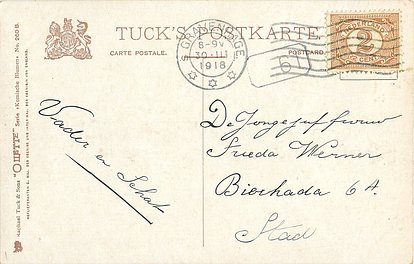 TUCK'S POSTKARTE.
CARTE POSTALE.
POSTCARD.
'S GRAVENHAGE
8-9V
30.III
1918
61
NEDERLAND
2
CENT
Raphael Tuck & Sons "OILETTE" Serie
No. 260 B.
Vader en Schat
De Jongejuffrouw
Frieda Werner
Bierkada 6A.
Stad